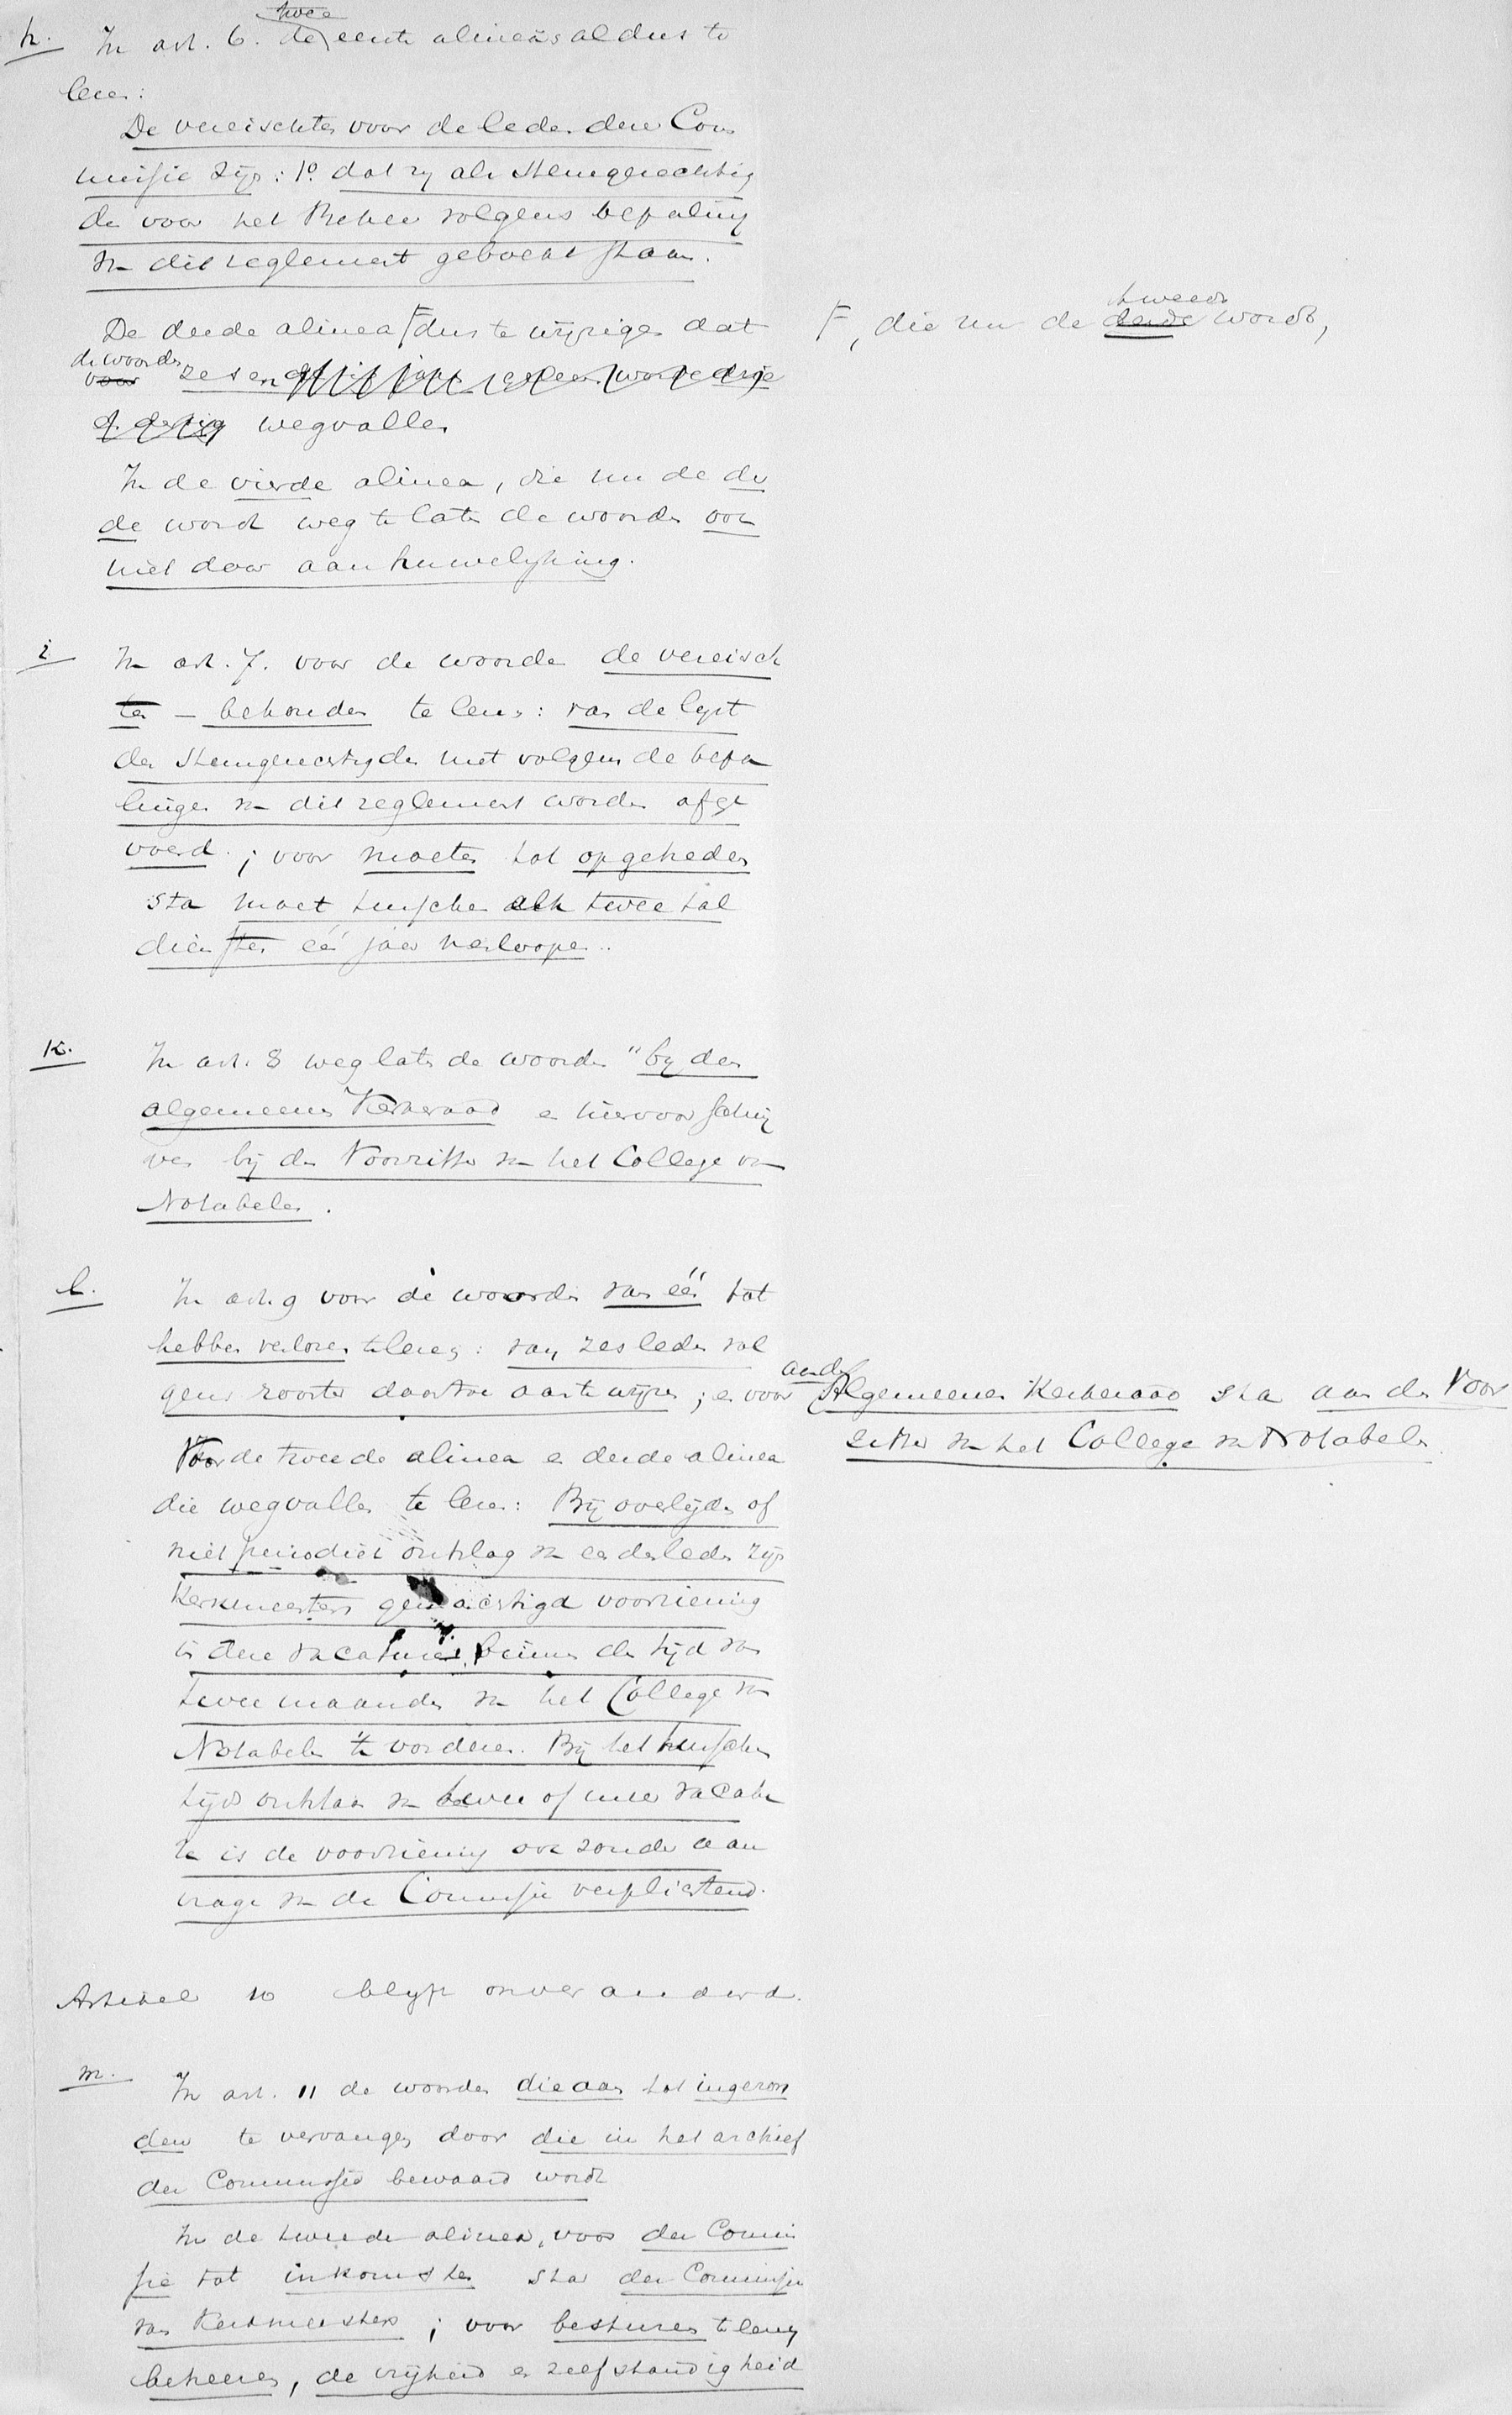 h. In art. 6. de twee eerste alinea's aldus te
lezen:
De vereischten voor de leden dezer Com
missie zijn: 1o. dat zij als Stemgerechtig
de voor het Beheer volgens bepaling
van dit reglement geboekt staan.
De derde alinea F dus te wijzigen dat
de woorden
voor zes en
wegvallen
F, die nu de derde tweede wordt,
In de vierde alinea, die nu de der
de wordt weg te laten de woorden ook
niet door aanhuwelijking.
i In art. 7. voor de woorden de vereisch
ten – behouden te lezen: van de lijst
der Stemgerechtigden niet volgens de bepa
lingen van dit reglement worden afge
voerd.; voor moeten tot opgeheden
sta moet tusschen elk twee tal
diensten één jaar verloopen..
K. In art. 8 weglaten de woorden "bij den
algemeenen Kerkeraad en hiervoor schrij
ven bij den Voorzitter van het College van
Notabelen.
l. In art. 9 voor de woorden van één tot
hebben verloren te lezen: van zes leden vol
gens rooster daartoe aan te wijzen; en voor aan den Algemeenen Kerkeraad sta aan den Voor
zitter van het College van Notabelen.
Voor de tweede alinea en derde alinea
die wegvallen te lezen: Bij overlijden of
niet periodiek ontslag van een der leden zijn
Kerkmeesters gemachtigd voorziening
in deze vacature, binnen den tijd van
twee maanden van het College van
Notabelen te vorderen. Bij het tusschen
tijds ontstaan van twee of meer vacatu
ren is de voorziening ook zonder aan
vrage van de Commissie verplichtend.
Artikel 10 blijft onveranderd.
m. In art. 11 de woorden die aan tot ingezon
den te vervangen door die in het archief
der Commissie bewaard wordt
In de tweede alinea, voor der Commis
sie tot inkomsten sta der Commissie
van Kerkmeesters; voor besturen te lezen
beheeren, de vrijheid en zelfstandigheid